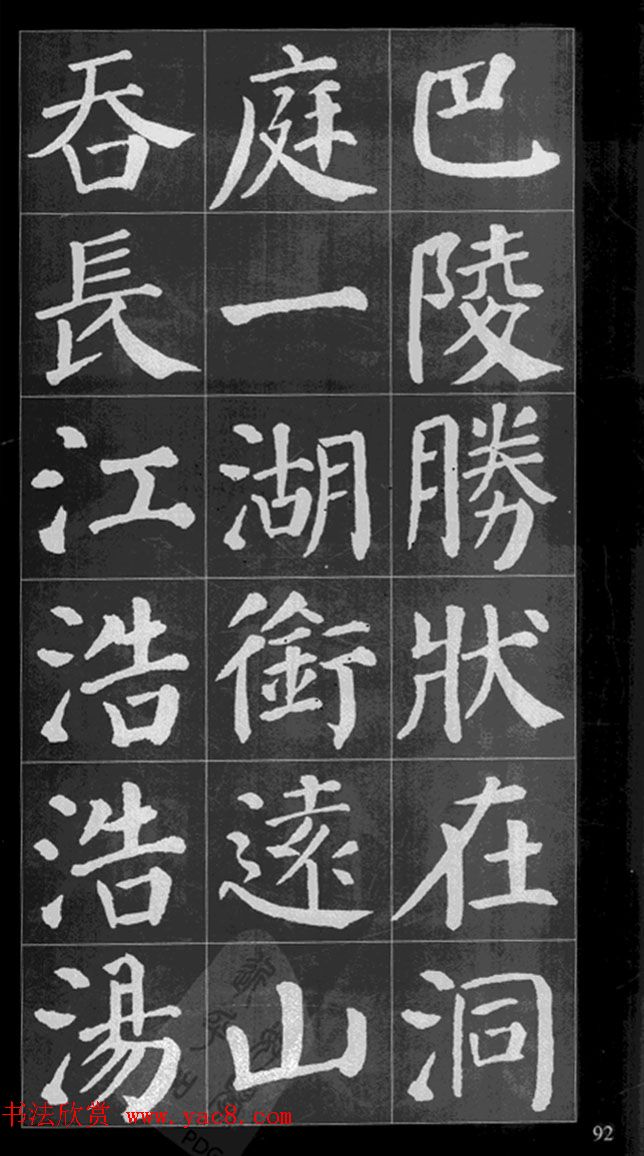 巴陵勝狀在洞
庭一湖銜遠山
吞長江浩浩湯
92
书法欣赏 www.yac8.com
PDG